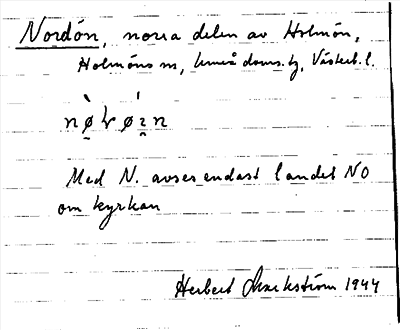 Nordön, norra delen av Holmön,
Holmöns sn, Umeå doms.tg, Västerb. l.
Med N. avses endast landet NO
om kyrkan
Herbert Markström 1944